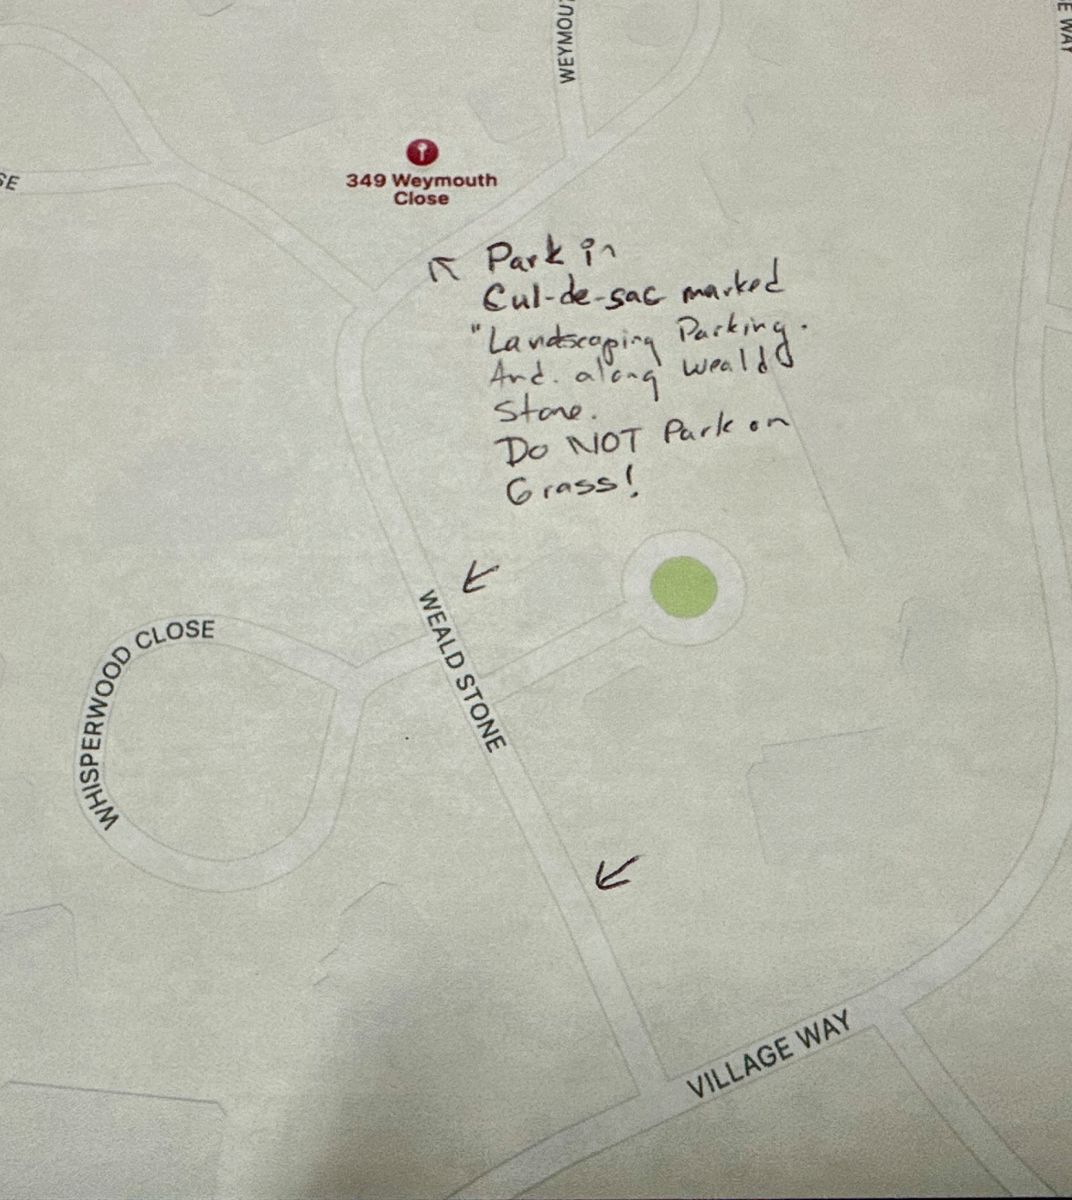 WEYMOU
E WAY
SE
349 Weymouth
Close
Park in
Cul-de-sac marked
"Landscaping Parking.
And. along Weald
Stone.
Do NOT Park on
Grass!
WEALD STONE
WHISPERWOOD CLOSE
VILLAGE WAY